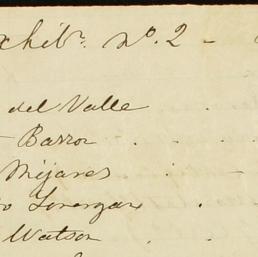 xhibr. No. 2 -
del Valle
Barror
Mijares
o Lonergan
Watson